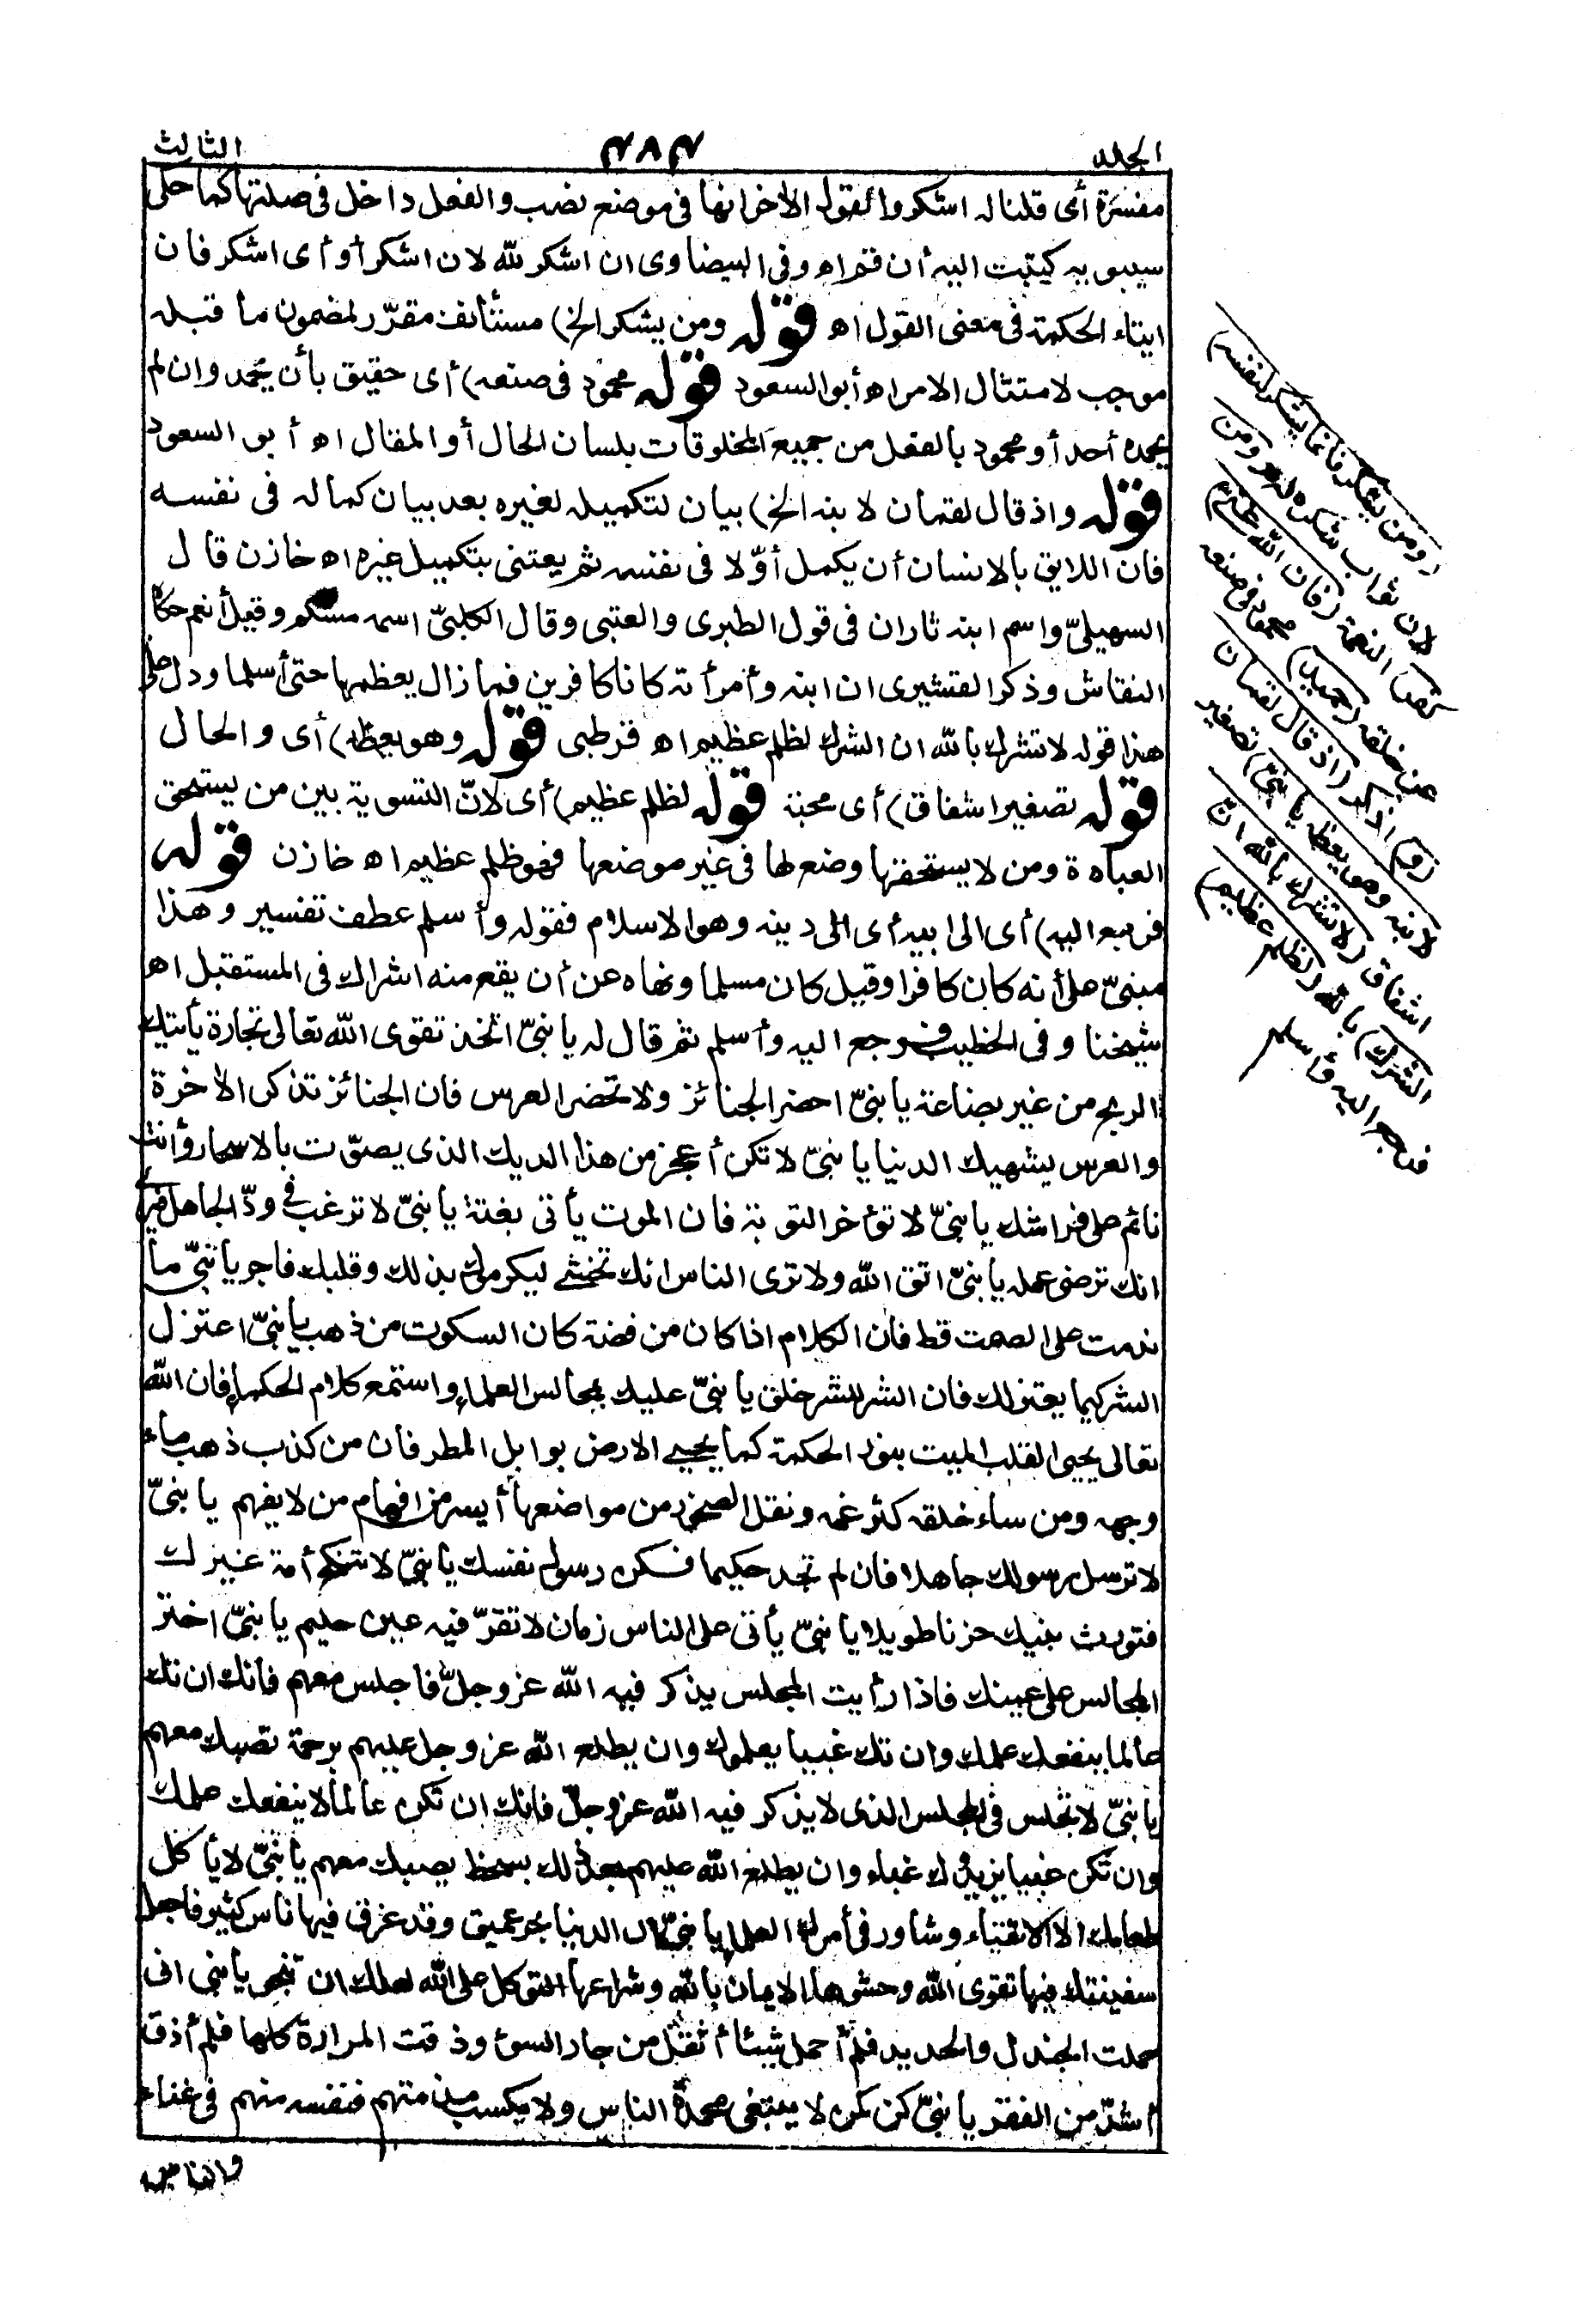 المجلد
٤٨٤
الثالث
مفسرة أى قلنا له اشكر والقول الآخر انها فى موضع نصب والفعل داخل فى صلتها كما حكى
سيبويه كتبت اليه أن قم اه وفى البيضاوى ان اشكر لله لان اشكر أو أى اشكر فان
ايتاء الحكمة فى معنى القول اه قوله ومن يشكر الخ) مستأنف مقرّر لمضمون ما قبله
موجب لامتثال الامر اه أبو السعود قوله محمود فى صنعه) أى حقيق بأن يحمد وان لم
يحمده أحد أو محمود بالفعل من جميع المخلوقات بلسان الحال أو المقال اه أبو السعود
قوله واذ قال لقمان لابنه الخ) بيان لتكميله لغيره بعد بيان كماله فى نفسه
فان اللايق بالانسان أن يكمل أوّلا فى نفسه ثم يعتنى بتكميل غيره اه خازن قال
السهيلىّ واسم ابنه ثاران فى قول الطبرى والعتبى وقال الكلبىّ اسمه مشكم وقيل أنعم حكاه
النقاش وذكر القشيرى ان ابنه وأمرأته كانا كافرين فما زال يعظهما حتى أسلما ودل على
هذا قوله لا تشرك بالله ان الشرك لظلم عظيم اه قرطبى قوله وهو يعظه) أى والحال
قوله تصغير اشفاق) أى محبة قوله لظلم عظيم) أى لانّ التسوية بين من يستحق
العبادة ومن لا يستحقها وضع لها فى غير موضعها فهو ظلم عظيم اه خازن قوله
فرجع اليه) أى الى ابيه أى الى دينه وهو الاسلام فقوله وأسلم عطف تفسير وهذا
مبنىّ على أنه كان كافرا وقيل كان مسلما ونهاه عن أن يقع منه اشراك فى المستقبل اه
شيخنا وفى الخطيب فرجع اليه وأسلم ثم قال له يا بنىّ اتخذ تقوى الله تعالى تجارة يأتيك
الربح من غير بضاعة يا بنىّ احضر الجنائز ولا تحضر العرس فان الجنائز تذكر الآخرة
والعرس يشهيك الدنيا يا بنىّ لا تكن أعجز من هذا الديك الذى يصوّت بالاسحار وأنت
نائم على فراشك يا بنىّ لا تؤخر التوبة فان الموت يأتى بغتة يا بنىّ لا ترغب فى ودّ الجاهل فيرى
انك ترضى عمله يا بنىّ اتق الله ولا ترى الناس انك تخشى ليكرموك بذلك وقلبك فاجر يا بنىّ ما
ندمت على الصمت قط فان الكلام اذا كان من فضة كان السكوت من ذهب يا بنىّ اعتزل
الشر كيما يعتزلك فان الشر للشر خلق يا بنىّ عليك بمجالس العلماء واستمع كلام الحكماء فان الله
تعالى يحيى القلب الميت بنور الحكمة كما يحيى الارض بوابل المطر فان من كذب ذهب ماء
وجهه ومن ساء خلقه كثر غمه ونقل الصخور من مواضعها أيسر من افهام من لا يفهم يا بنىّ
لا ترسل رسولك جاهلا فان لم تجد حكيما فكن رسول نفسك يا بنىّ لا تنكح أمة غيرك
فتورث بنيك حزنا طويلا يا بنىّ يأتى على الناس زمان لا تقرّ فيه عين حليم يا بنىّ اختر
المجالس على عينك فاذا رأيت المجلس يذكر فيه الله عز وجلّ فاجلس معهم فانك ان تك
عالما ينفعك علمك وان تك غبيا يعلموك وان يطلع الله عز وجل عليهم برحمة تصبك معهم
يا بنىّ لا تجلس فى المجلس الذى لا يذكر فيه الله عز وجلّ فانك ان تكن عالما لا ينفعك علمك
وان تكن غبيا يزيدوك غباء وان يطلع الله عليهم بعد ذلك بسخط يصبك معهم يا بنىّ لا يأكل
طعامك الا الاتقياء وشاور فى أمرك العلماء يا بنىّ ان الدنيا بحر عميق وقد غرق فيها ناس كثير فاجعل
سفينتك فيها تقوى الله وحشوها الايمان بالله وشراعها التوكل على الله لعلك ان تنجو يا بنى انى
حملت الجندل والحديد فلم أحمل شيئا أثقل من جار السوء وذقت المرارة كلها فلم أذق
أشدّ من الفقر يا بنىّ كن كمن لا يبتغى محمدة الناس ولا يكسب مذمتهم فنفسه منهم فى غناء
والناس
(ومن يشكر فانما يشكر لنفسه)
لان ثواب شكره له (ومن
كفر) النعمة (فان الله غنى)
عن خلقه (حميد) محمود فى صنعه
(و) اذكر (اذ قال لقمان
لابنه وهو يعظه يا بنىّ) تصغير
اشفاق (لا تشرك بالله انّ
الشرك) بالله (لظلم عظيم)
فرجع اليه وأسلم